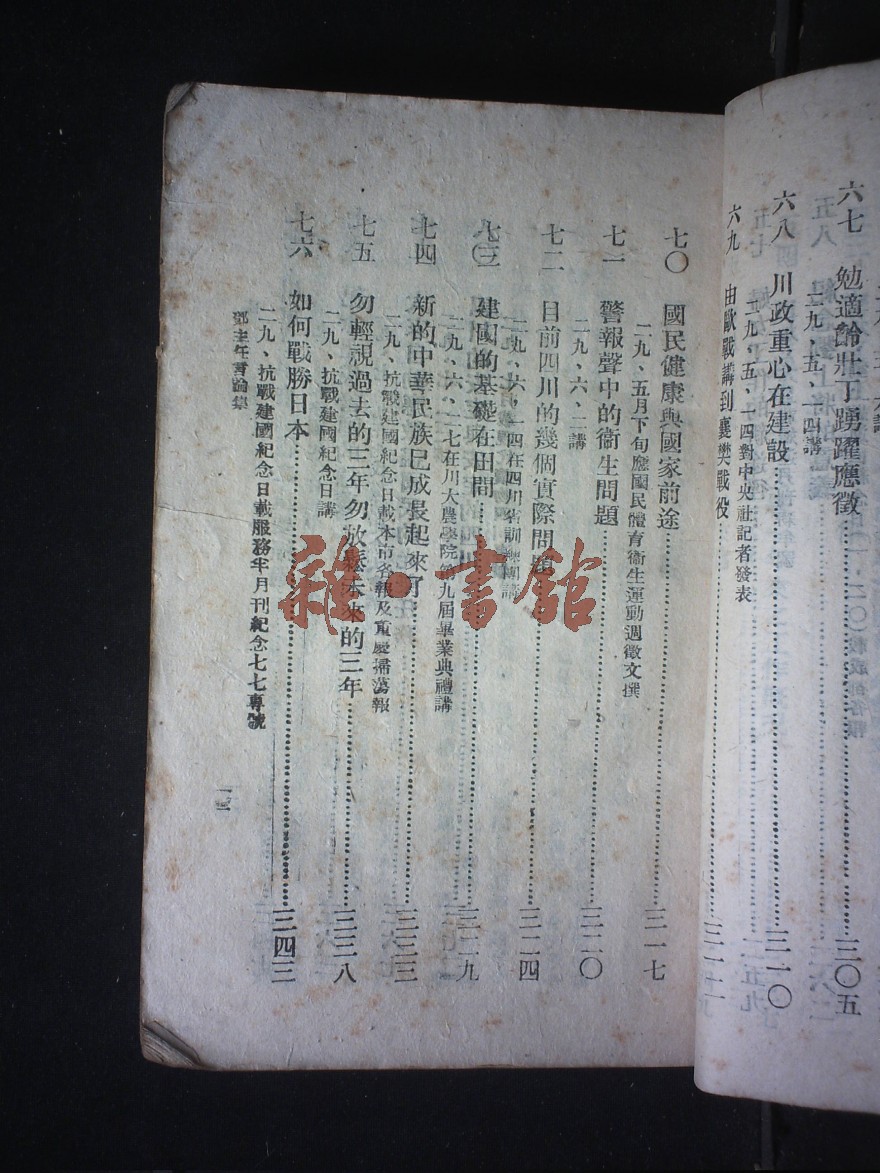 六七 勉適齡壯丁踴躍應徵……三〇五
二九、五、一四講
六八 川政重心在建設……三一〇
二九、五、一四對中央社記者發表
六九 由歐戰講到襄樊戰役……三一二
七〇 國民健康與國家前途……三一七
二九、五月下旬應國民體育衞生運動週徵文撰
七一 警報聲中的衞生問題……三二〇
二九、六、二講
七二 目前四川的幾個實際問題……三二四
二九、六、一四在四川省訓練團講
七三 建國的基礎在田間……三二九
二九、六、一七在川大農學院第九屆畢業典禮講
七四 新的中華民族已成長起來了……三三三
二九、抗戰建國紀念日載本市各報及重慶掃蕩報
七五 勿輕視過去的三年勿放鬆未來的三年……三三八
二九、抗戰建國紀念日講
七六 如何戰勝日本……三四三
二九、抗戰建國紀念日載服務半月刊紀念七七專號
鄧主任言論集
雜·書館